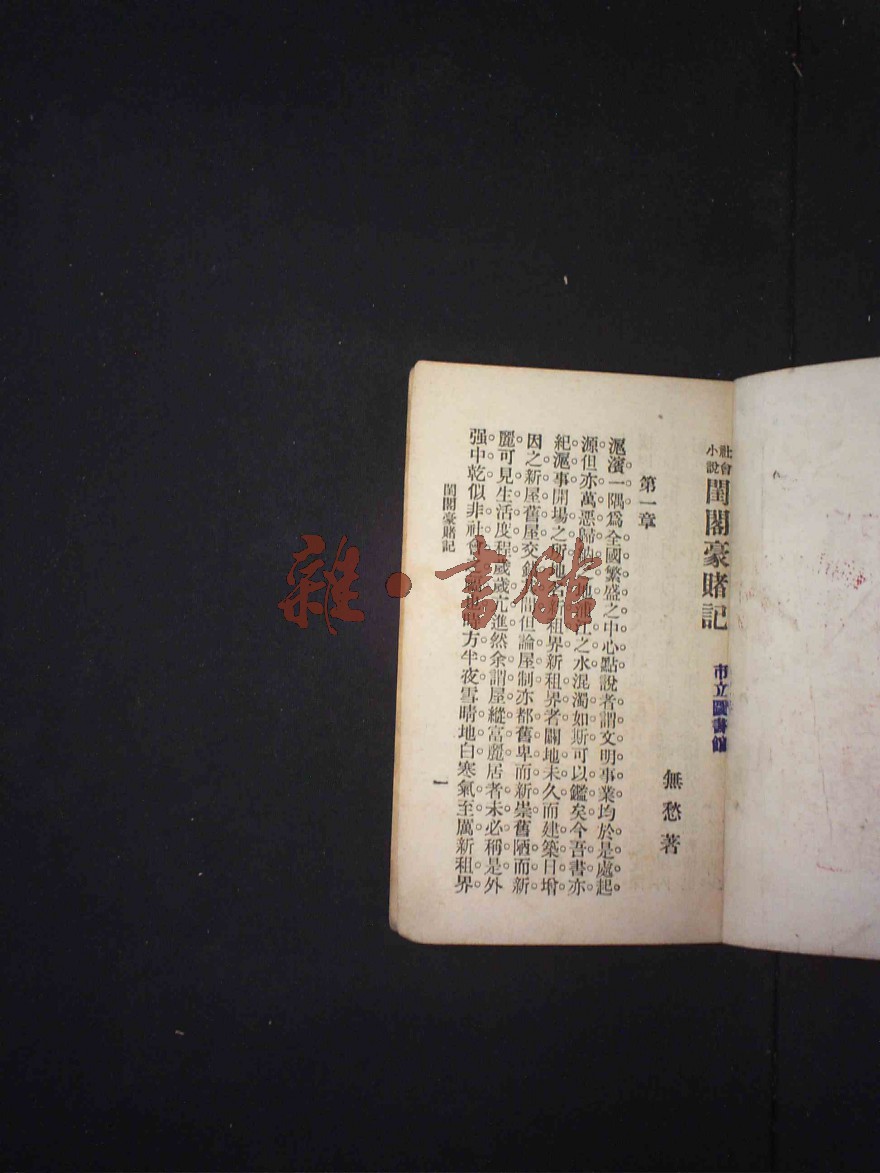 社會小說 閨閣豪賭記
市立圖書館
無愁著
第一章
滬濱一隅爲全國繁盛之中心點說者謂文明事業均於是處起
源但亦萬惡歸之水混濁如斯可以鑑矣今吾書亦
紀滬事開場之新租界新租界者闢地未久而建築日增
因之新屋舊屋交間但論屋制亦都舊卑而新崇舊陋而新
麗可見生活度程歲歲亢進然余謂屋縱富麗居者未必稱是外
强中乾似非社會方半夜雪晴地白寒氣至厲新租界
閨閣豪賭記
一
雜·書館